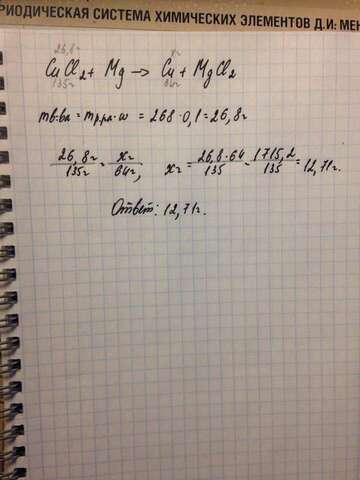 РИОДИЧЕСКАЯ СИСТЕМА ХИМИЧЕСКИХ ЭЛЕМЕНТОВ Д.И: МЕН
26,8г xг
CuCl2 + Mg → Cu + MgCl2
135г 64г
mв-ва = mр-ра · w = 268 · 0,1 = 26,8г
26,8г/135г = xг/64г, xг = 26,8·64/135 = 1715,2/135 = 12,71г.
Ответ: 12,71г.